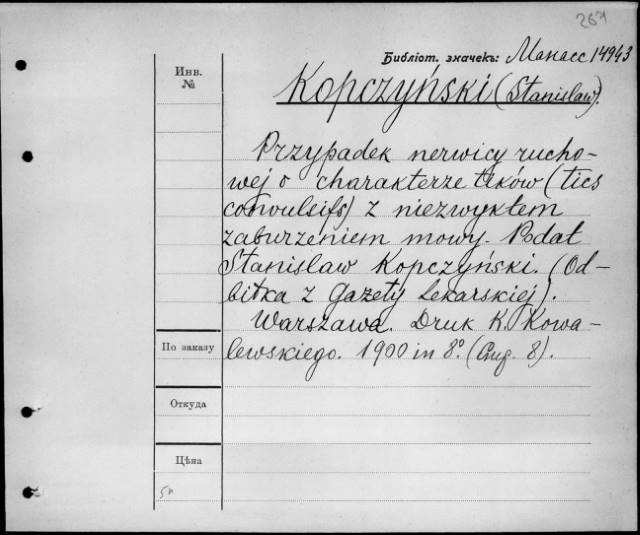 267
Библіот. значекъ: Манасс 14943
Инв.
№
Kopczyński (Stanisław).
Przypadek nerwicy rucho-
wej o charakterze tików (tics
convulsifs) z niezwykłem
zaburzeniem mowy. Podał
Stanisław Kopczyński. (Od-
bitka z Gazety Lekarskiej).
Warszawa. Druk K. Kowa-
По заказу
lewskiego. 1900 in 8º. (Стр. 8).
Откуда
Цѣна